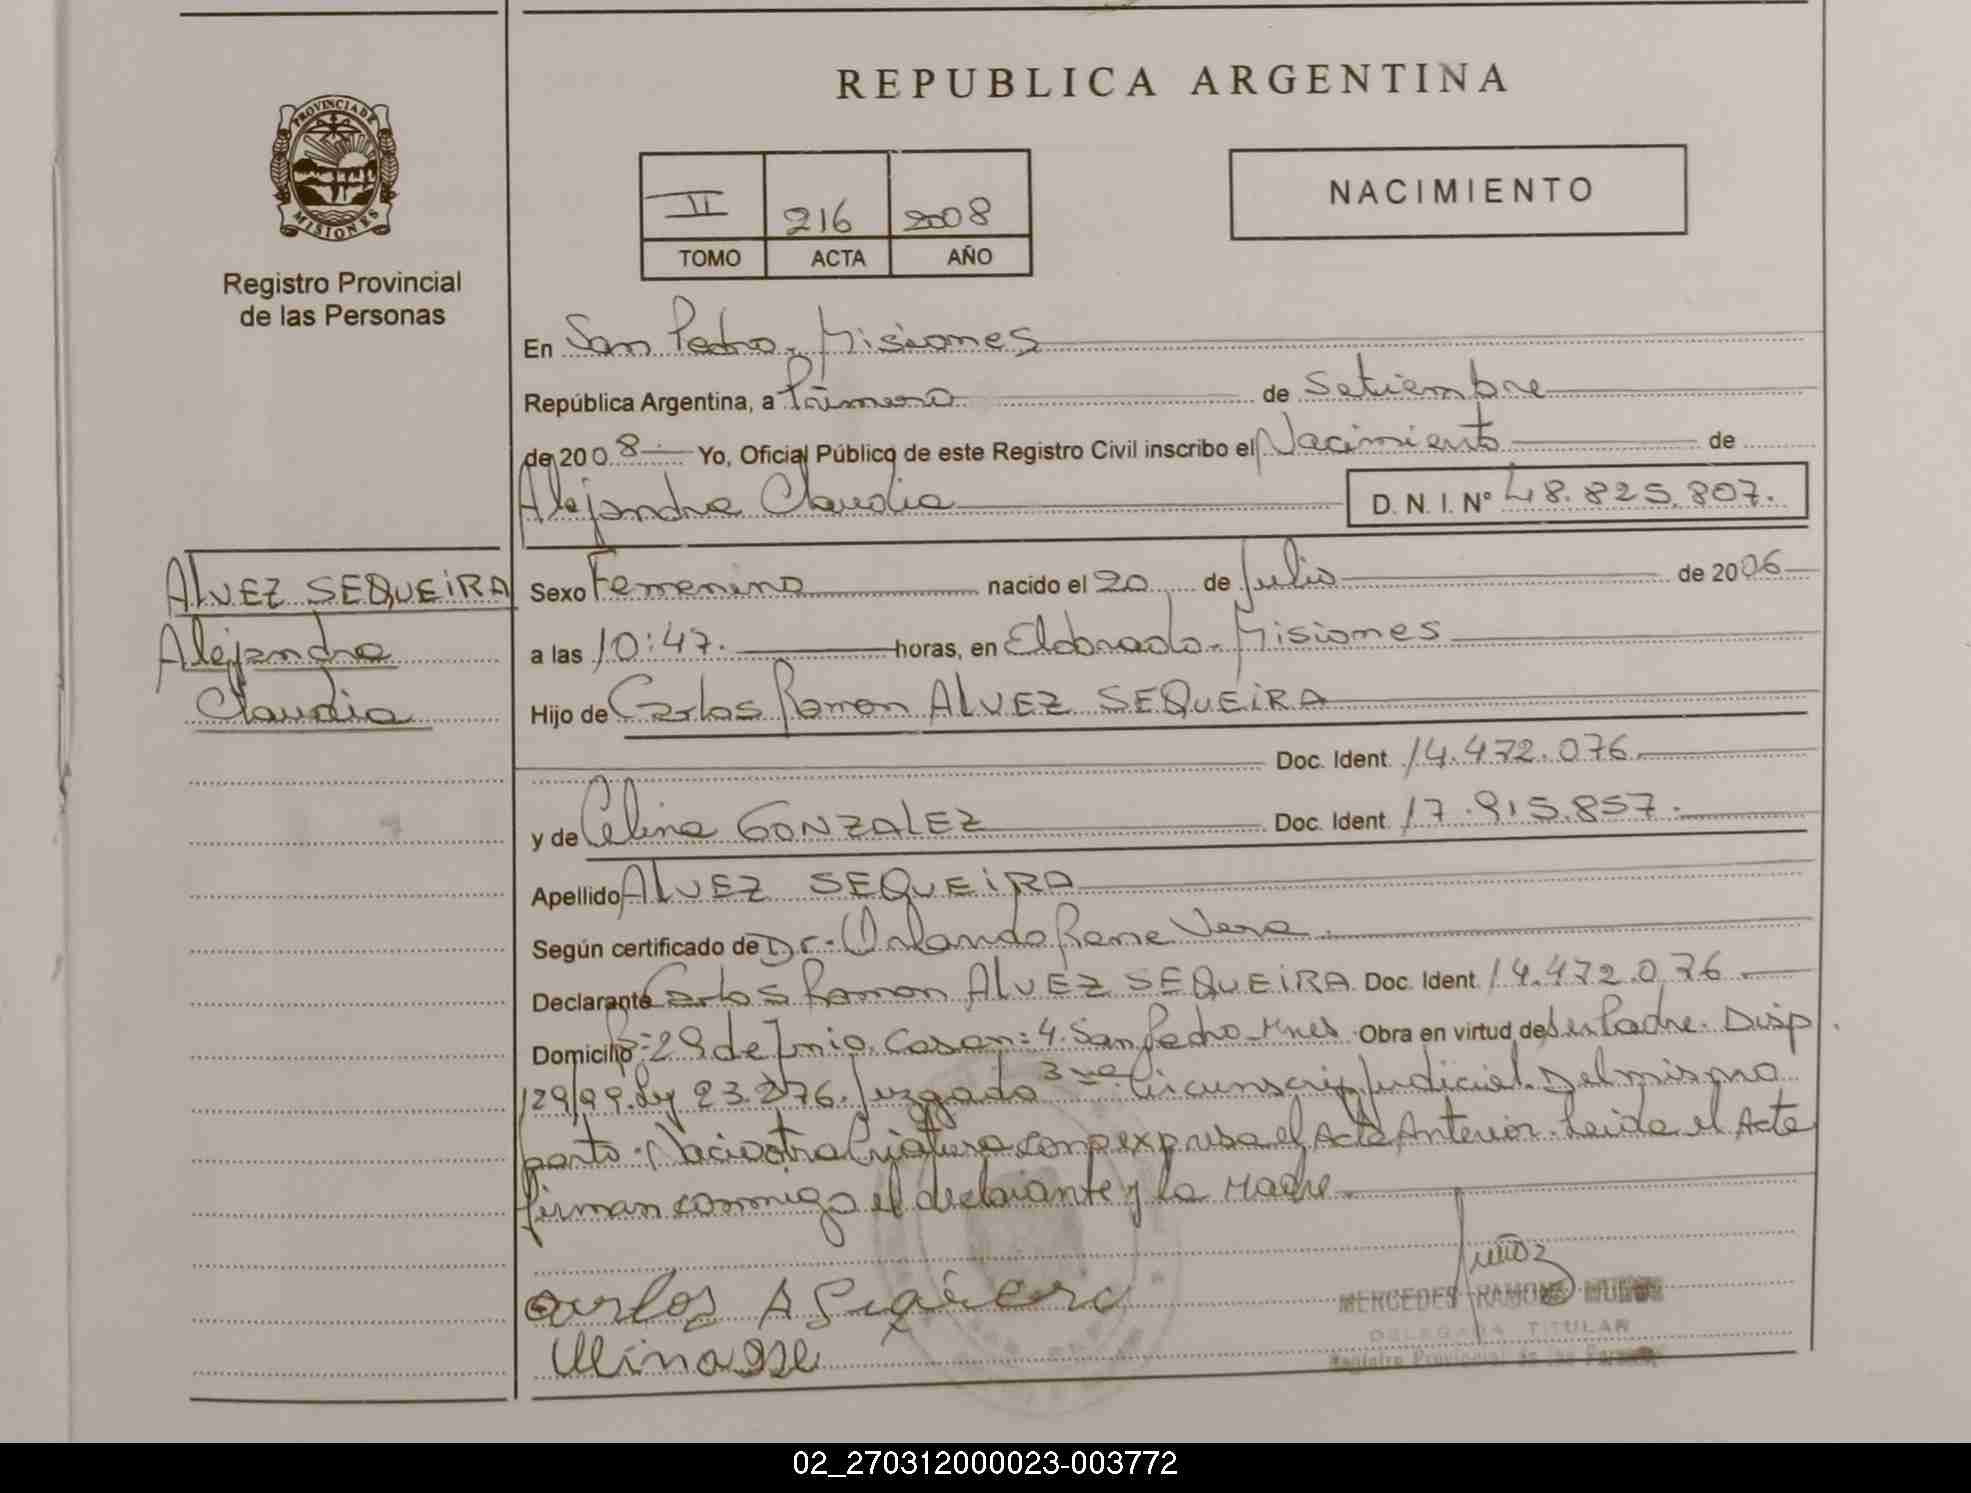 REPUBLICA ARGENTINA
PROVINCIA DE MISIONES
Registro Provincial
de las Personas
II 216 2008
TOMO ACTA AÑO
NACIMIENTO
En San Pedro. Misiones
República Argentina, a Primero de Setiembre
de 2008 Yo, Oficial Público de este Registro Civil inscribo el Nacimiento de
Alejandra Claudia D. N. I. Nº 48.825.807.
ALVEZ SEQUEIRA
Alejandra
Claudia
Sexo Femenino nacido el 20 de Julio de 2006
a las 10:47. horas, en Eldorado. Misiones
Hijo de Carlos Ramon ALVEZ SEQUEIRA
Doc. Ident. 14.472.076
y de Celina GONZALEZ Doc. Ident. 17.915.857.
Apellido ALVEZ SEQUEIRA
Según certificado de Dr. Orlando Rene Vera.
Declarante Carlos Ramon ALVEZ SEQUEIRA Doc. Ident. 14.472.076
Domicilio Bº 29 de Junio. Casa n: 4. San Pedro. Mnes. Obra en virtud de Ser Padre. Disp.
129/99. Ley 23.276. Juzgado 3ra Circunscrip Judicial. Del mismo
parto. Nacio otra Criatura como expresa el Acta Anterior. Leida el Acta
firman conmigo el declarante y la Madre
Carlos A Seqüeira
Muñoz
MERCEDES RAMONA MUÑOZ
DELEGADA TITULAR
Registro Provincial de las Personas
02_270312000023-003772